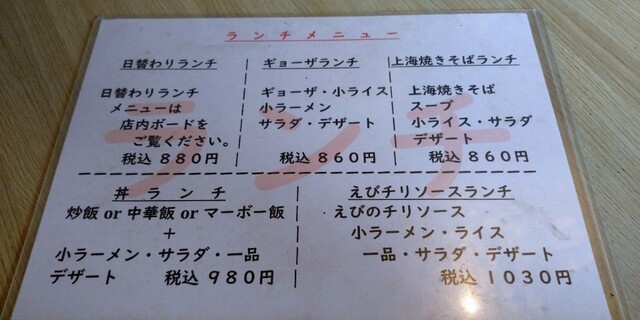 ランチメニュー
日替わりランチ
日替わりランチ
メニューは
店内ボードを
ご覧ください。
税込 880円
ギョーザランチ
ギョーザ・小ライス
小ラーメン
サラダ・デザート
税込 860円
上海焼きそばランチ
上海焼きそば
スープ
小ライス・サラダ
デザート
税込 860円
ランチ
丼ランチ
炒飯 or 中華飯 or マーボー飯
+
小ラーメン・サラダ・一品
デザート 税込 980円
えびチリソースランチ
えびのチリソース
小ラーメン・ライス
一品・サラダ・デザート
税込 1030円